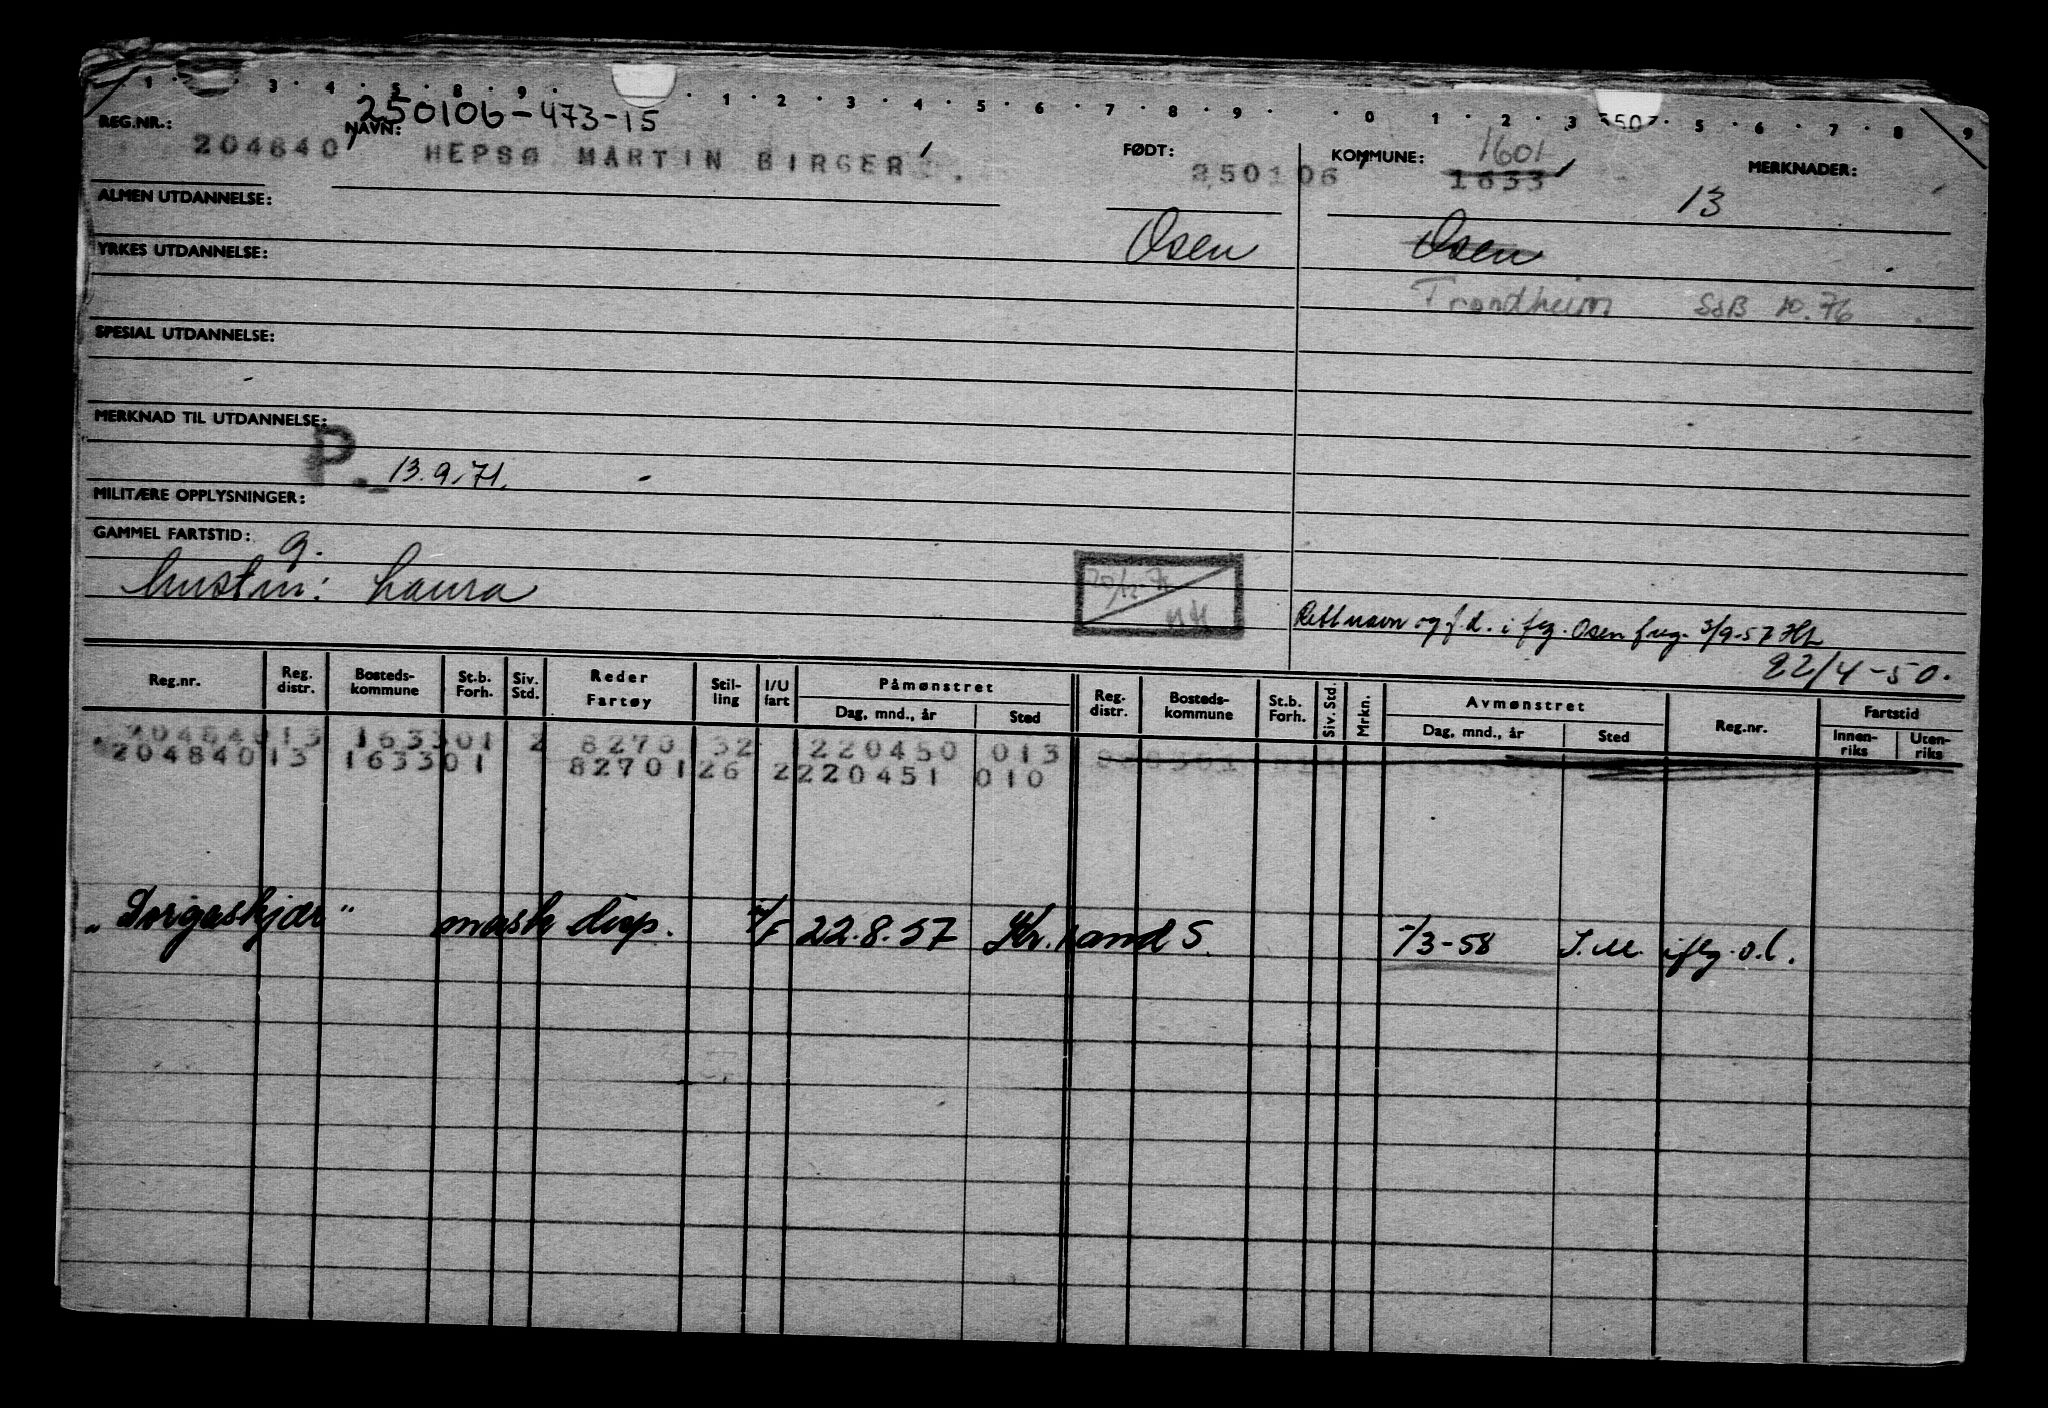 1 · 3 · 4 · 5 · 8 · 9 · · 1 · 2 · 3 · 4 · 5 · 6 · 7 · 8 · 9 · · 0 · 1 · 2 · 3 · 5 · 6 · 7 · 8 · 9
250106-473-15
REG.NR.: 204840 NAVN: HEPSØ MARTIN BIRGER FØDT: 250106 KOMMUNE: 1601 1633 MERKNADER:
13
ALMEN UTDANNELSE:
YRKES UTDANNELSE: Osen Osen
Trondheim SSB 10.76
SPESIAL UTDANNELSE:
MERKNAD TIL UTDANNELSE:
P. 13.9.71.
MILITÆRE OPPLYSNINGER:
GAMMEL FARTSTID: g.
hustru: Laura
Rett navn og f.d. i flg. Osen freg. 3/9-57
22/4-50.
Reg.nr. Reg. distr. Bosteds-kommune St.b. Forh. Siv. Std. Reder Fartøy Stil-ling I/U fart Påmønstret Dag, mnd., år Sted Reg. distr. Bosteds-kommune St.b. Forh. Siv. Std. Mrkn. Avmønstret Dag, mnd., år Sted Reg.nr. Fartstid Innen-riks Uten-riks
204840 13 1633 01 2 8270 32 220450 013
204840 13 1633 01 82701 26 2 220451 010
"Torgaskjær" mask disp. 22.8.57 Kr.sand S. -/3-58 i flg. o.l.